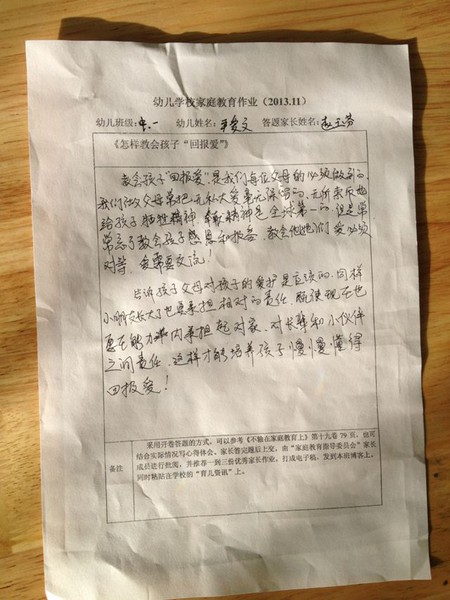 幼儿学校家庭教育作业（2013.11）
幼儿班级：中.一 幼儿姓名： 文 答题家长姓名：赵玉芬
《怎样教会孩子“回报爱”》
教会孩子“回报爱”，是我们每位父母的必须做到的，
我们做父母常把无私大爱毫无保留的、无所求乐地
给孩子 牺牲精神 奉献精神是全球第一的，但是常
常忘了教会孩子感恩和报答、教会他她们 爱必须
对等、爱需要交流！
告诉孩子父母对孩子的爱护是应该的、同样
小 长大了也要承担相对的责任 现在也
要在能力范围内承担起对家、对长辈和小伙伴
之间责任、这样才能培养孩子慢慢懂得
回报爱！
备注
采用开卷答题的方式，可以参考《不输在家庭教育上》第十九卷 79 页，也可
结合实际情况写心得体会。家长答完题后上交，由“家庭教育指导委员会”家长
成员进行批阅，并推荐一到三份优秀家长作业，打成电子稿，发到本班博客上，
同时粘贴在学校的“育儿资讯”上。